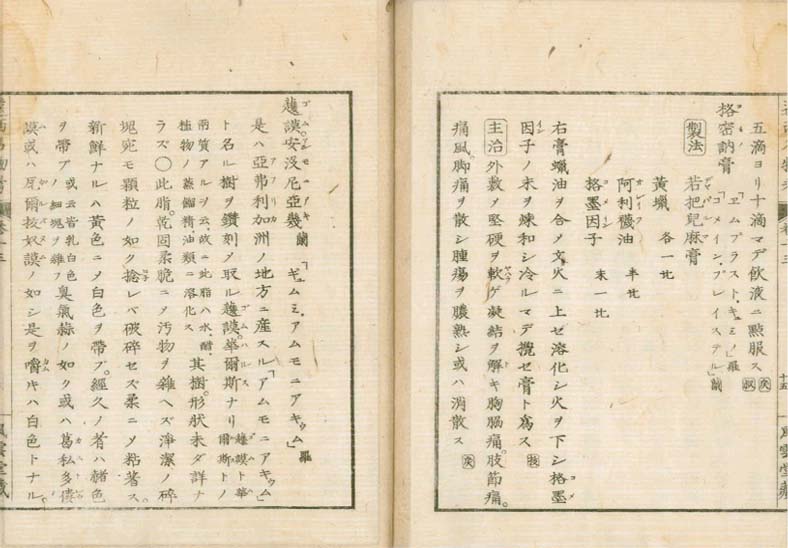 五滴ヨリ十滴マデ飲液ニ點服ス
格密訥膏 「エムプラスト、キュミノ」羅 「コメイン、プレイステル」蘭
製法 若把兒麻膏
黄蠟 各一ヒ
阿利襪油 半ヒ
格墨因子 末一ヒ
右膏蠟油ヲ合メ文火ニ上セ溶化シ火ヲ下シ格墨
因子ノ末ヲ煉和シ冷ルマデ攪セ膏ト爲ス
主治 外敷メ堅硬ヲ軟ゲ凝結ヲ解キ胸膈痛。肢節痛。
痛風。脚痛ヲ散シ腫瘍ヲ釀熟シ或ハ消散ス
十五
風雲堂藏
護謨安没尼亞幾 蘭 「ギュムミ、アムモニアキュム」羅
是ハ亞弗利加洲ノ地方ニ産スル「アムモニアキュム」
ト名ル樹ヲ鑚刻メ取ル護謨華爾斯ナリ 護謨ト華爾斯トノ
兩質アルヲ云、故ニ此脂ハ水、醋、植物ノ蒸餾精油類ニ溶化ス 其樹。形狀未ダ詳ナ
ラズ〇此脂。乾固柔脆ニメ汚物ヲ雜ヘズ淨潔ノ碎
塊宛モ顆粒ノ如ク捻レバ破碎セズ柔ニメ粘著ス。
新鮮ナルハ黄色ニメ白色ヲ帶ブ。經久ノ者ハ赭色
ヲ帶ブ 或云皆乳白色ノ細塊ヲ雜フ 臭氣蒜ノ如ク或ハ葛私多僂
謨或ハ厦爾抜奴謨ノ如シ是ヲ嚼キハ白色トナル。
風雲堂藏